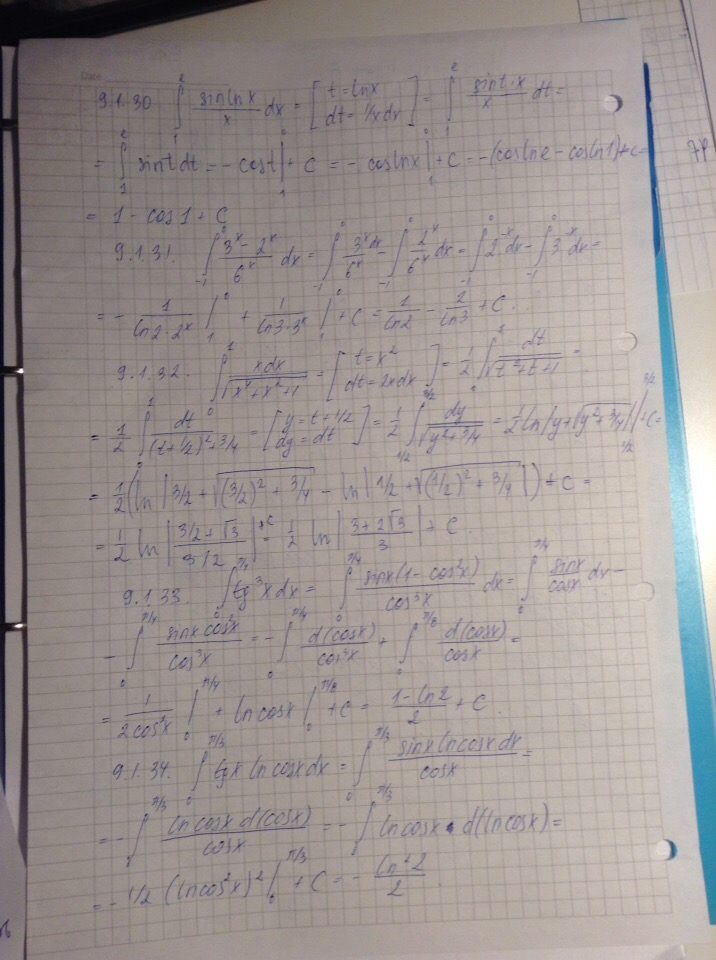 Date
9.1.30 ∫₁ᵉ sin ln x / x dx = [t = ln x, dt = 1/x dx] = ∫₁ᵉ sin t · x / x dt =
= ∫₁ᵉ sin t dt = - cos t |₁ᵉ + C = - cos ln x |₁ᵉ + C = -(cos ln e - cos ln 1) + C =
= 1 - cos 1 + C
9.1.31. ∫₋₁⁰ (3ˣ - 2ˣ)/6ˣ dx = ∫₋₁⁰ 3ˣ dx/6ˣ - ∫₋₁⁰ 2ˣ/6ˣ dx = ∫₋₁⁰ 2⁻ˣ dx - ∫₋₁⁰ 3⁻ˣ dx =
= - 1/(ln 2 · 2ˣ) |₁⁰ + 1/(ln 3 · 3ˣ) |₁⁰ + C = 1/ln 2 - 2/ln 3 + C.
9.1.32. ∫₀¹ x dx/√(x⁴ + x² + 1) = [t = x², dt = 2x dx] = 1/2 ∫₀¹ dt/√(t² + t + 1) =
= 1/2 ∫₀¹ dt/√((t + 1/2)² + 3/4) = [y = t + 1/2, dy = dt] = 1/2 ∫_{1/2}^{3/2} dy/√(y² + 3/4) = 1/2 ln |y + √(y² + 3/4)| |_{1/2}^{3/2} + C =
= 1/2 (ln |3/2 + √((3/2)² + 3/4)| - ln |1/2 + √((1/2)² + 3/4)|) + C =
= 1/2 ln |(3/2 + √3)/(3/2)| + C = 1/2 ln |(3 + 2√3)/3| + C.
9.1.33. ∫₀^{π/4} tg³x dx = ∫₀^{π/4} sin x (1 - cos²x)/cos³x dx = ∫₀^{π/4} sin x/cos³x dx -
- ∫₀^{π/4} sin x cos²x/cos³x = - ∫₀^{π/4} d(cos x)/cos³x + ∫₀^{π/8} d(cos x)/cos x =
= 1/(2cos²x) |₀^{π/4} + ln cos x |₀^{π/8} + C = (1 - ln 2)/2 + C.
9.1.34. ∫₀^{π/3} tg x ln cos x dx = ∫₀^{π/3} sin x ln cos x dx/cos x =
= - ∫₀^{π/3} ln cos x d(cos x)/cos x = - ∫₀^{π/3} ln cos x · d(ln cos x) =
= - 1/2 (ln cos²x)² |₀^{π/3} + C = - ln²2/2.